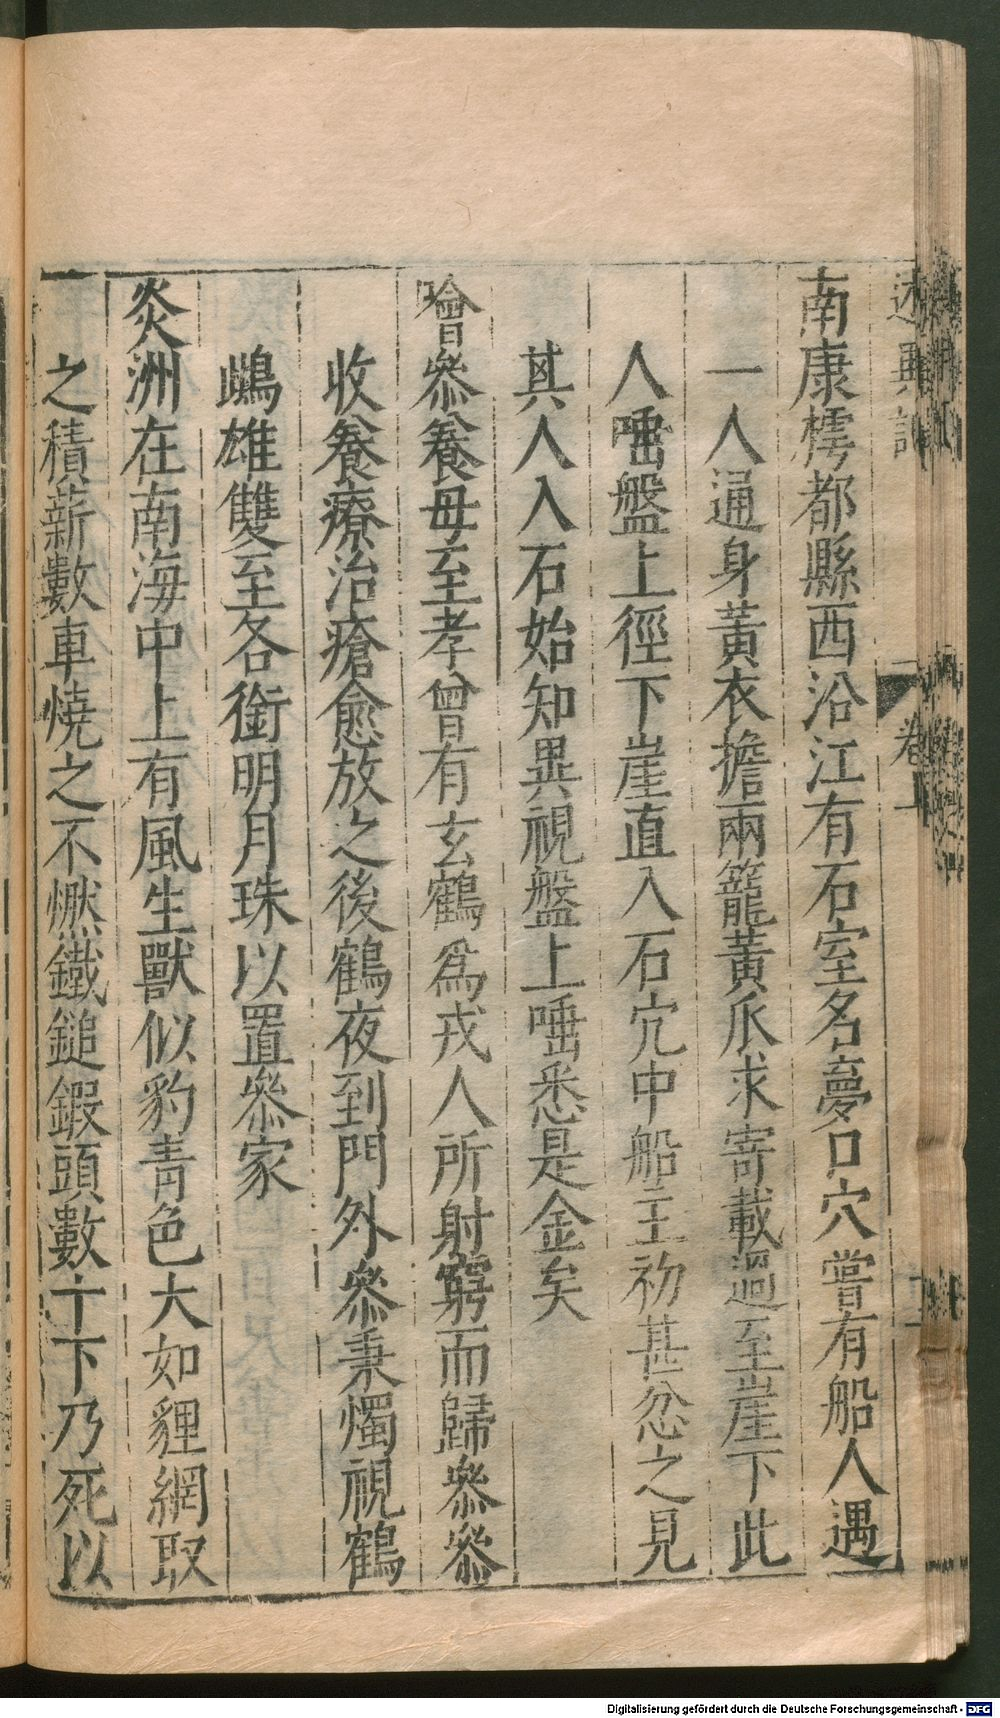 述異記 卷上
南康樗都縣西沿江有石室名夢口穴嘗有船人遇
一人通身黃衣擔兩籠黃瓜求寄載過至崖下此
人唾盤上徑下崖直入石穴中船主初甚忿之見
其人入石始知異視盤上唾悉是金矣
噲參養母至孝曾有玄鶴爲戎人所射窮而歸參參
收養療治瘡愈放之後鶴夜到門外參秉燭視鶴
鴟雄雙至各銜明月珠以置參家
炎洲在南海中上有風生獸似豹青色大如貍網取
之積薪數車燒之不燃鐵鎚鍛頭數十下乃死以
Digitalisierung gefördert durch die Deutsche Forschungsgemeinschaft - DFG